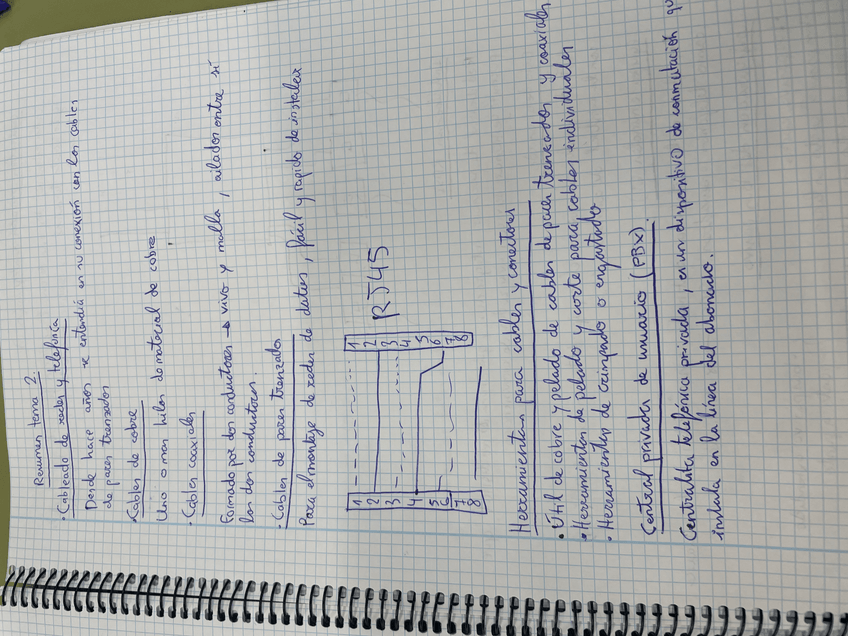 Resumen tema 2.
• Cableado de redes y telefonica
Desde hace años se entendia en su conexión con los cables
de pares tranzados
• Cables de cobre
Uno o mas hilos de material de cobre
• Cables coaxiales
Formado por dos conductores → vivo y malla, ailados entre sí
los dos conductores.
• Cables de pares trenzados
Para el montaje de redes de datos, fácil y rapido de instalar
1 1
2 2
3 3
4 4
5 5
6 6
7 7
8 8
RJ45
Herramientas para cables y conectores
• Útil de cobre y pelado de cables de pares trenzados y coaxiales
• Herramientas de pelado y corte para cables individuales
• Herramientas de crimpado o engastado
Central privada de usuario (PBX).
Centralita telefónica privada, es un dispositivo de conmutación qu
instala en la línea del abonado.